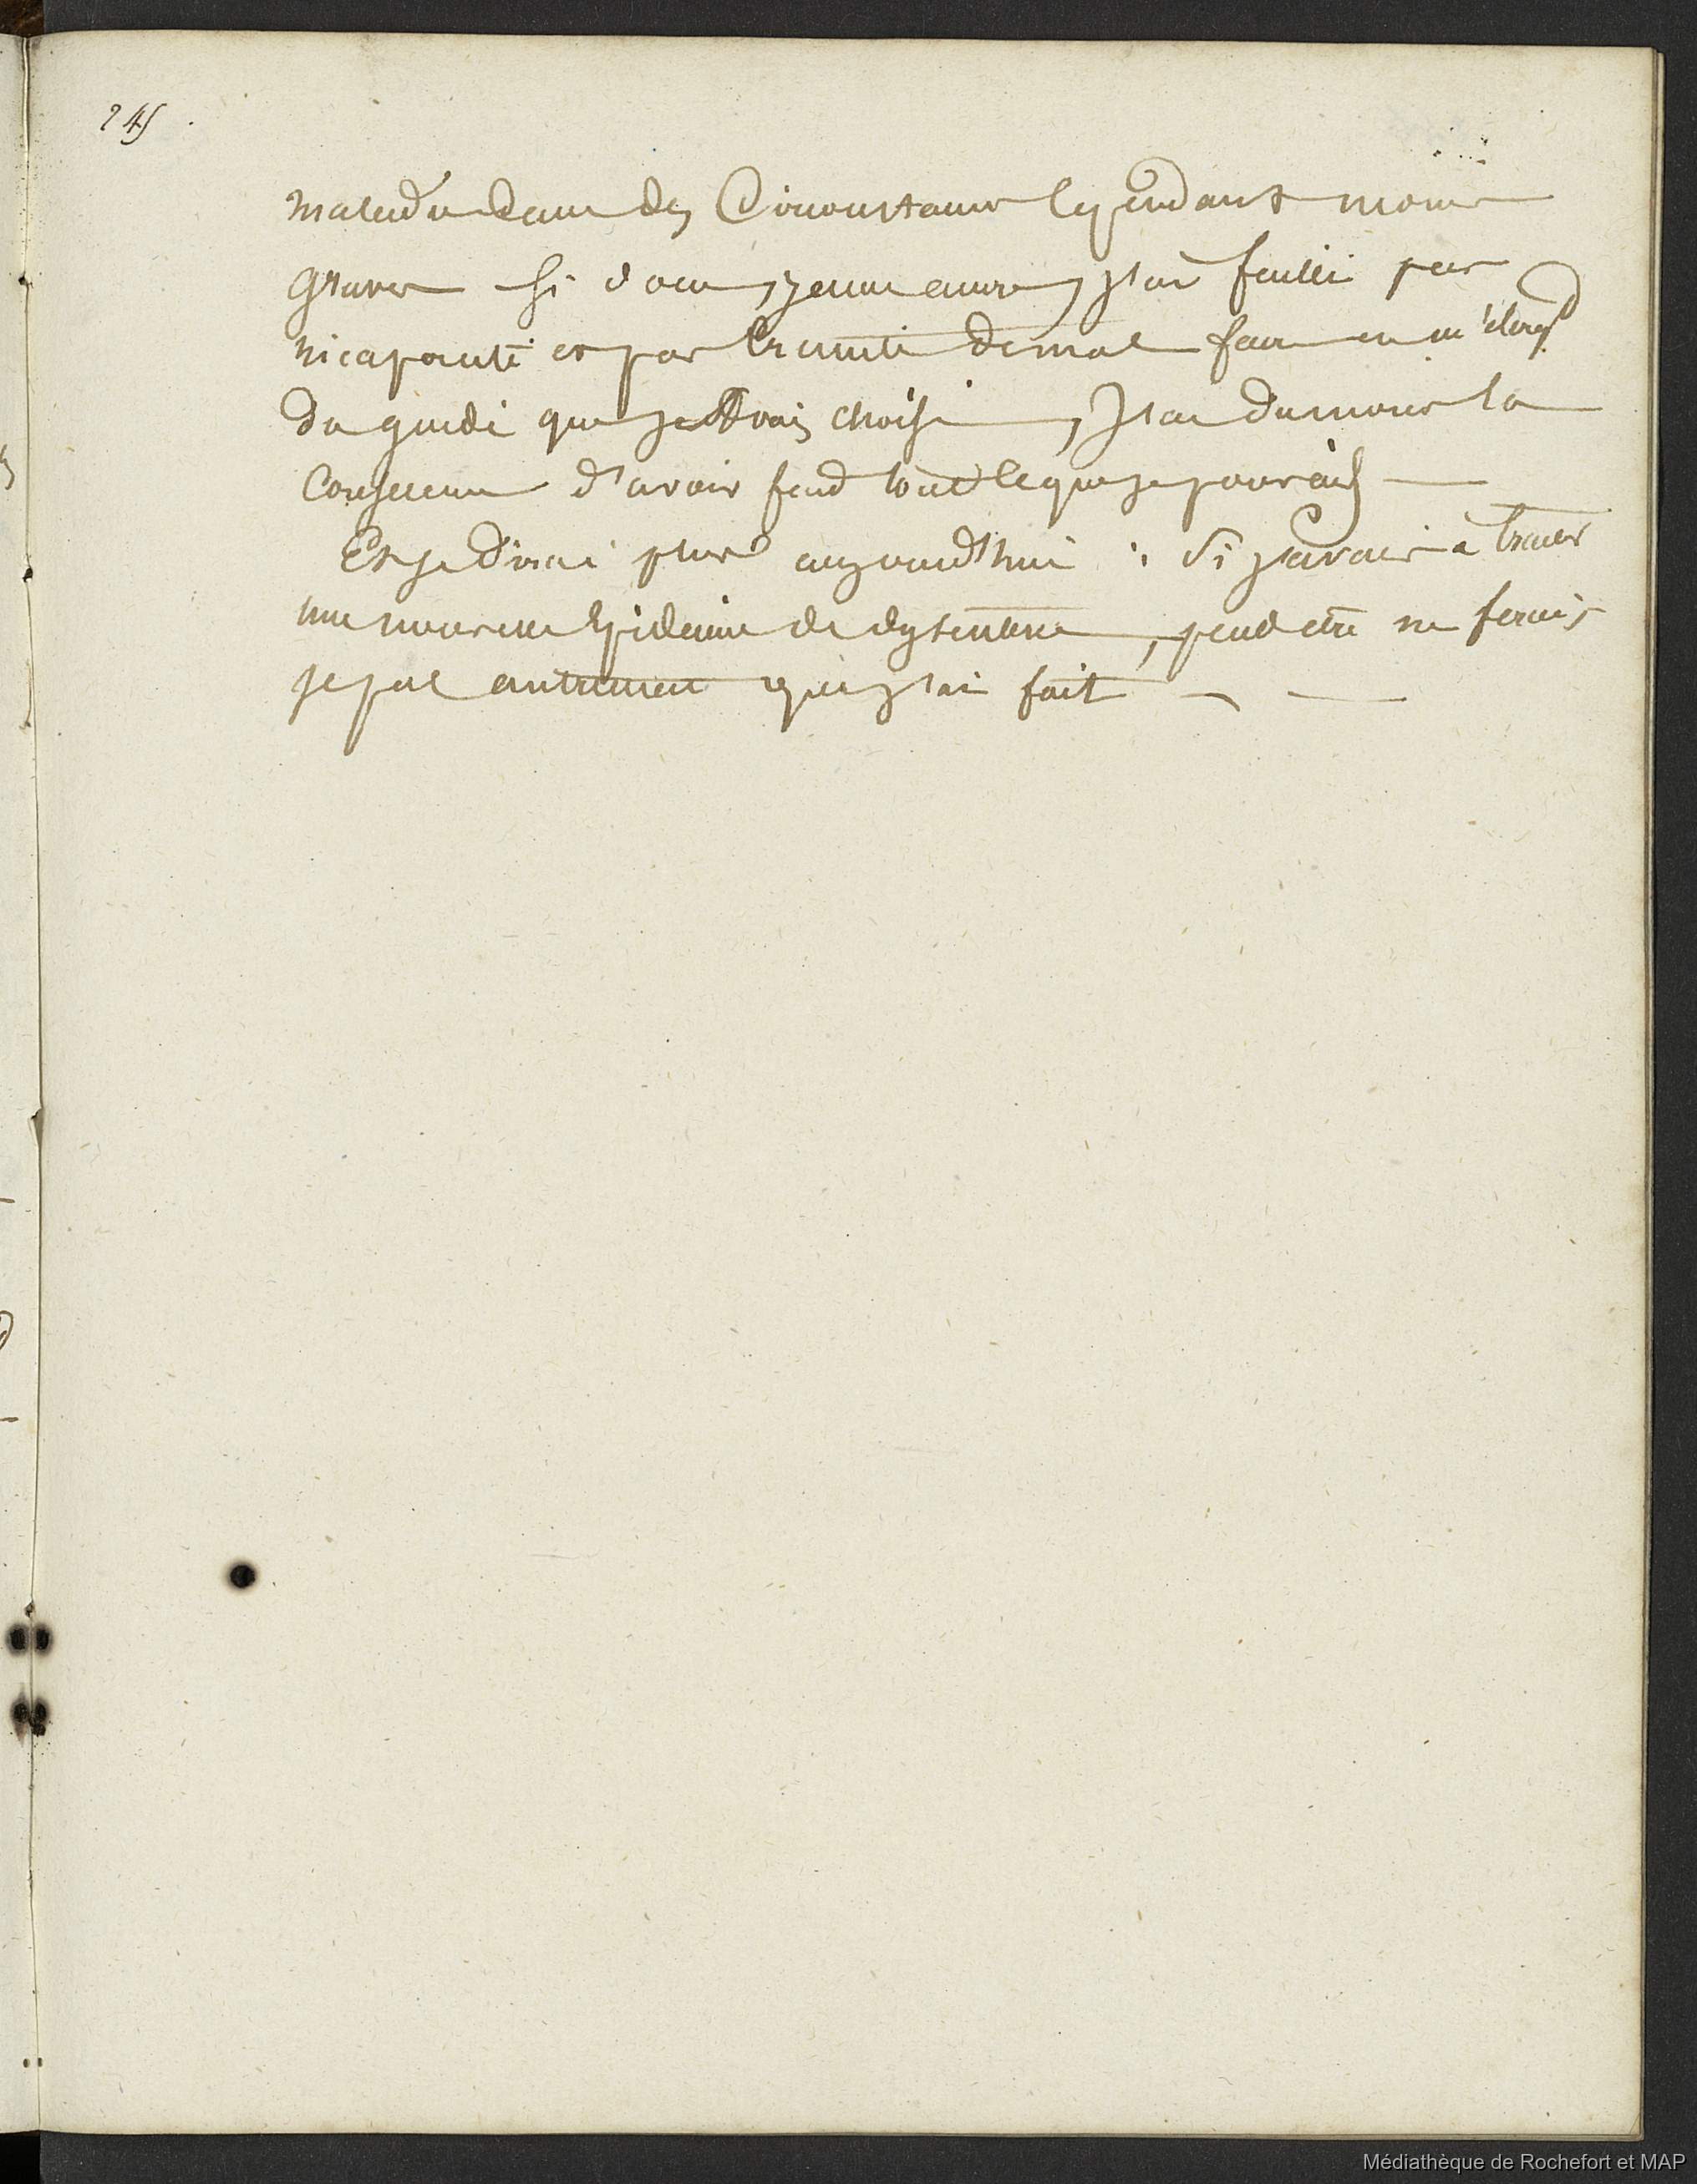 245.
maladie dans des Circonstances Cependant moins
graves si donc jeune encore, j'ai failli par
incapacité et par crainte de mal faire en m'éloigt
du guide que j'avais choisi, J'ai du moins la
Conscience d'avoir fait tout ce que je pouvais
Et je dirai plus aujourd'hui : si j'avais à traiter
une nouvelle Epidémie de dysenterie, peut etre ne ferais
je pas autrement que j'ai fait
Médiathèque de Rochefort et MAP